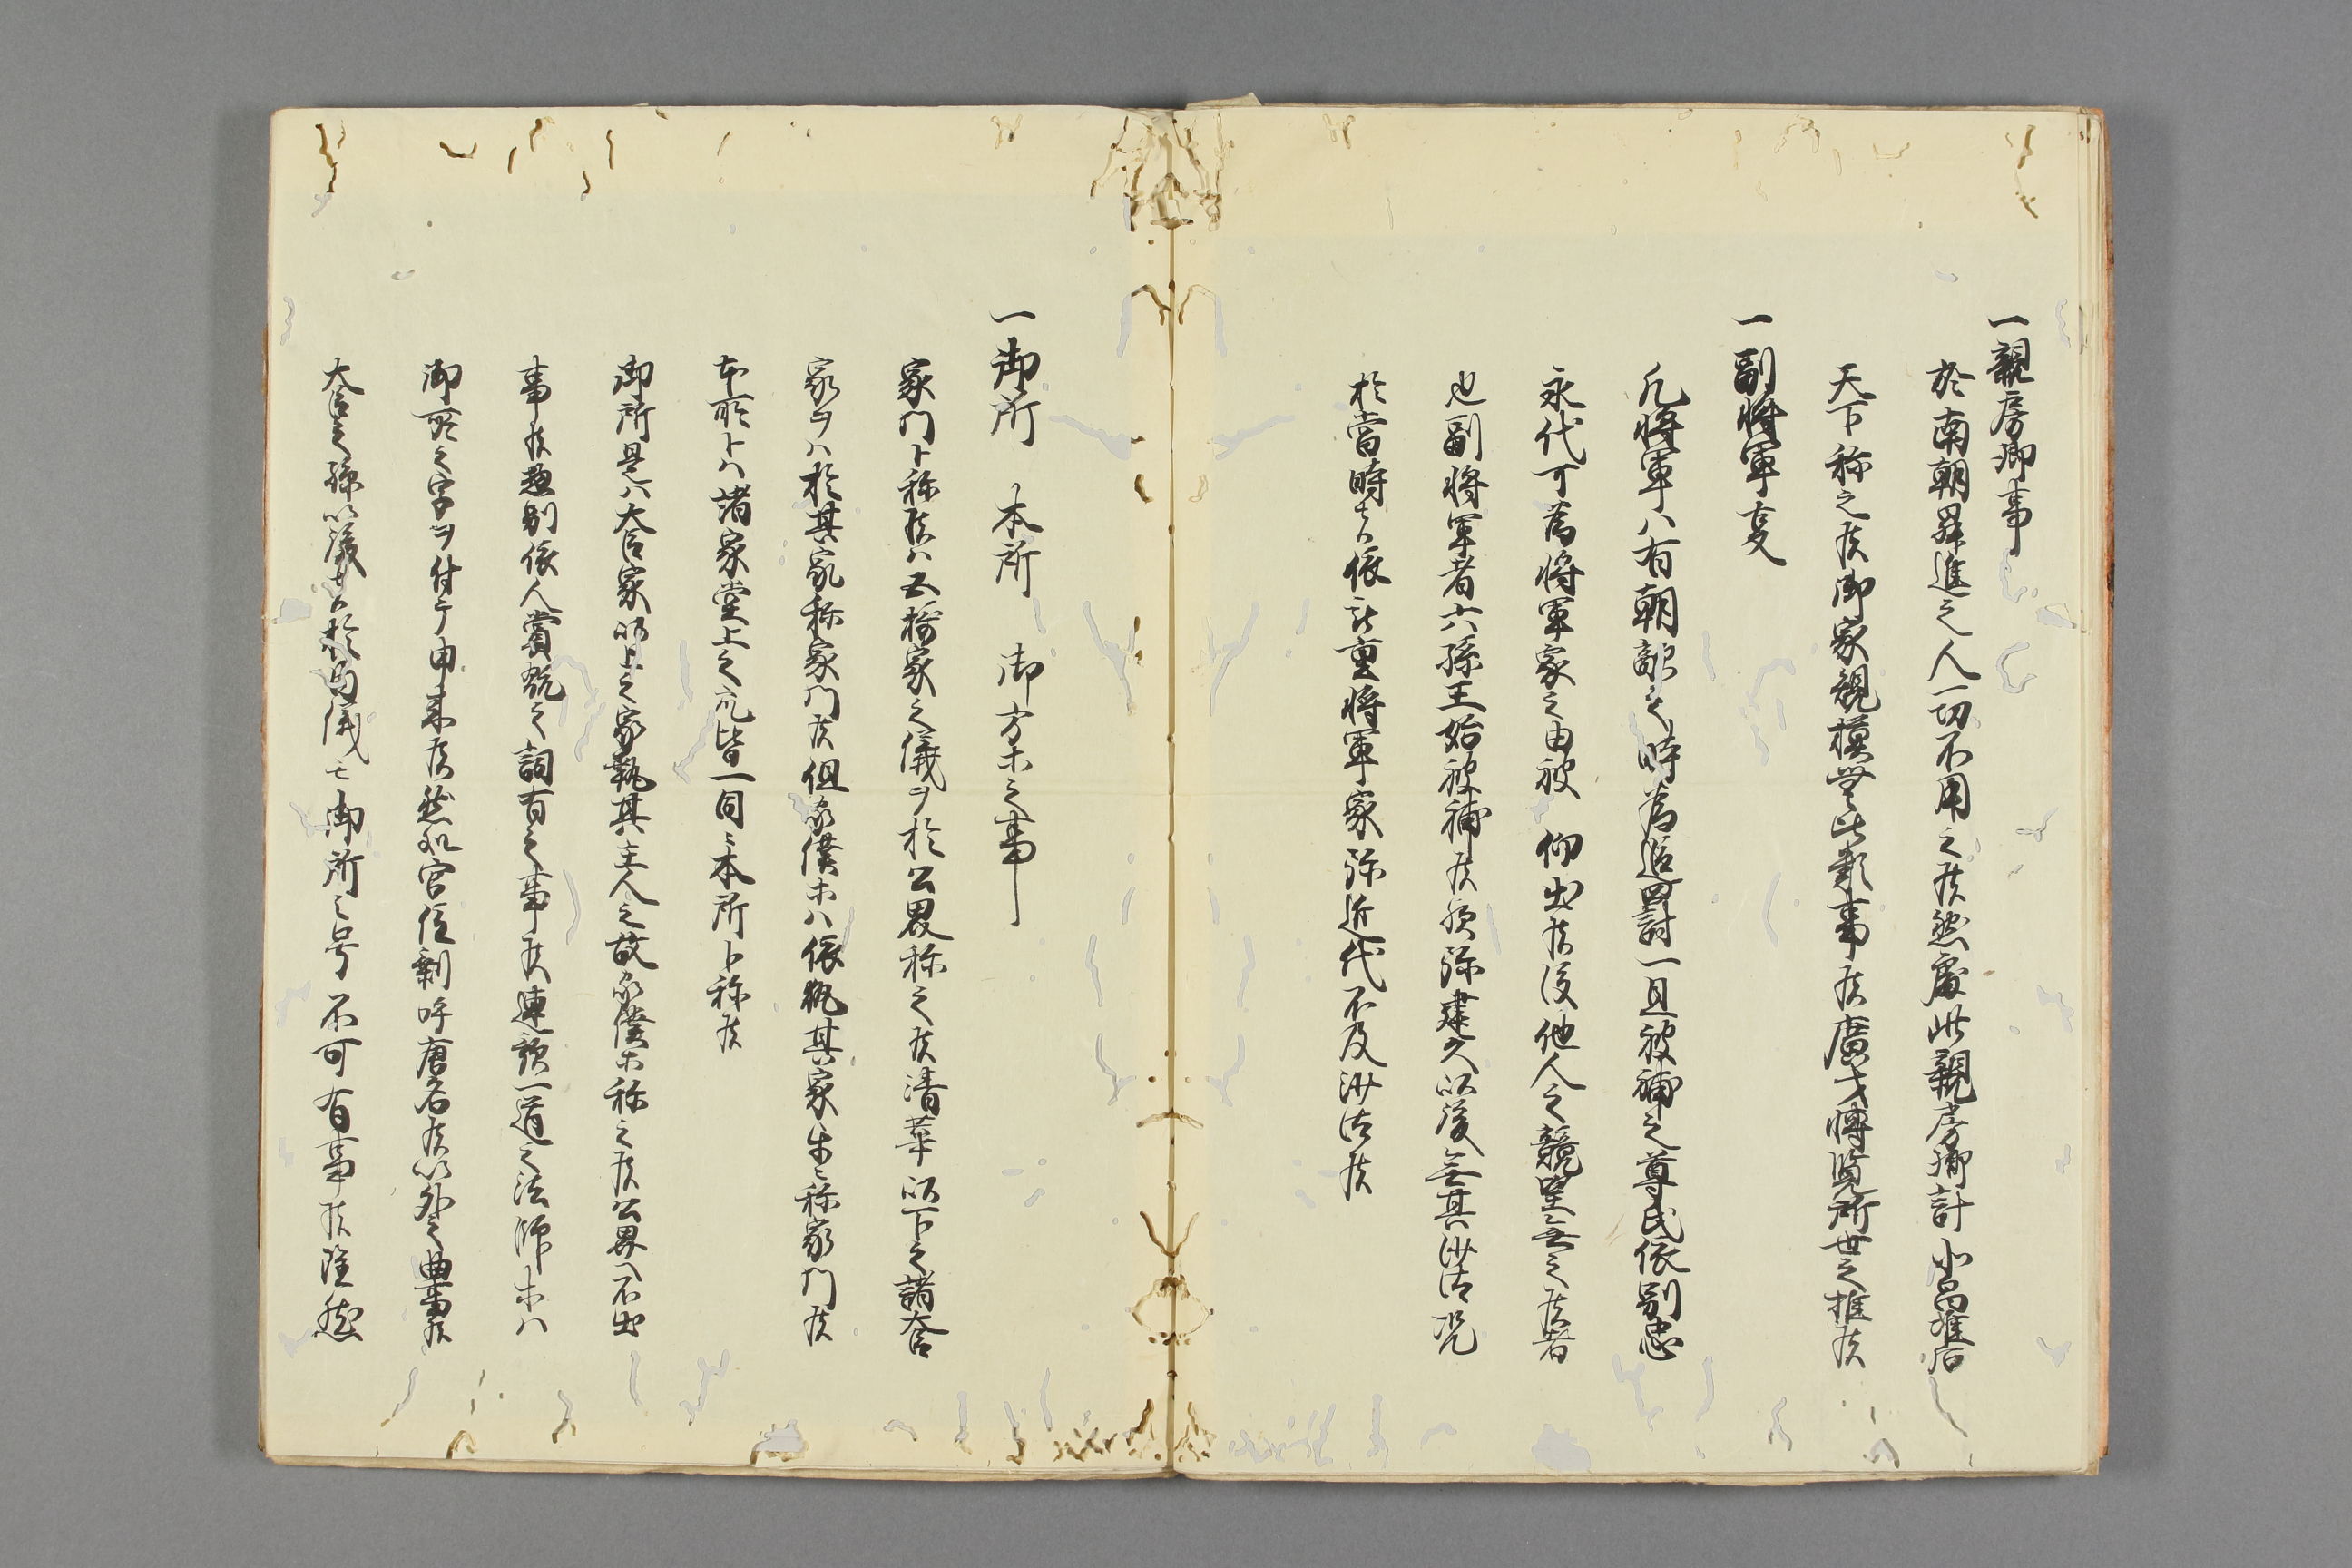 一親房卿事
於南朝昇進之人一切不用之候然處此親房卿計小昌准后
天下称之候御家規模無比類事候廣才博覧所世之推候
一副将軍事
凡将軍ハ有朝敵之時為追罸討一旦被補之尊氏依別忠
永代可為将軍家之由被 仰出候後他人之競望無之候者
也副将軍者六孫王始被補候 建久以後無其沙汰況
於當時者依 重将軍家 近代不及沙汰候
一御所 本所 御方ホ之事
家門ト称候ハ五摂家之儀ヲ於公界称之候清華以下之諸大臣
家ヲハ於其家称家門候但家僕ホハ依執其家 称家門候
本所トハ諸家堂上之 皆一同ニ本所ト称候
御所是ハ大臣家以上之家執其主人之故家僕ホ称之候公界ヘ不出
事候惣別依人賞翫之詞有之事候連歌一道之法師ホハ
御所之字ヲ付テ申来候然処官位剰呼唐名候以外之曲事候
大臣之孫以後者於内儀モ御所之号不可有事候雖然